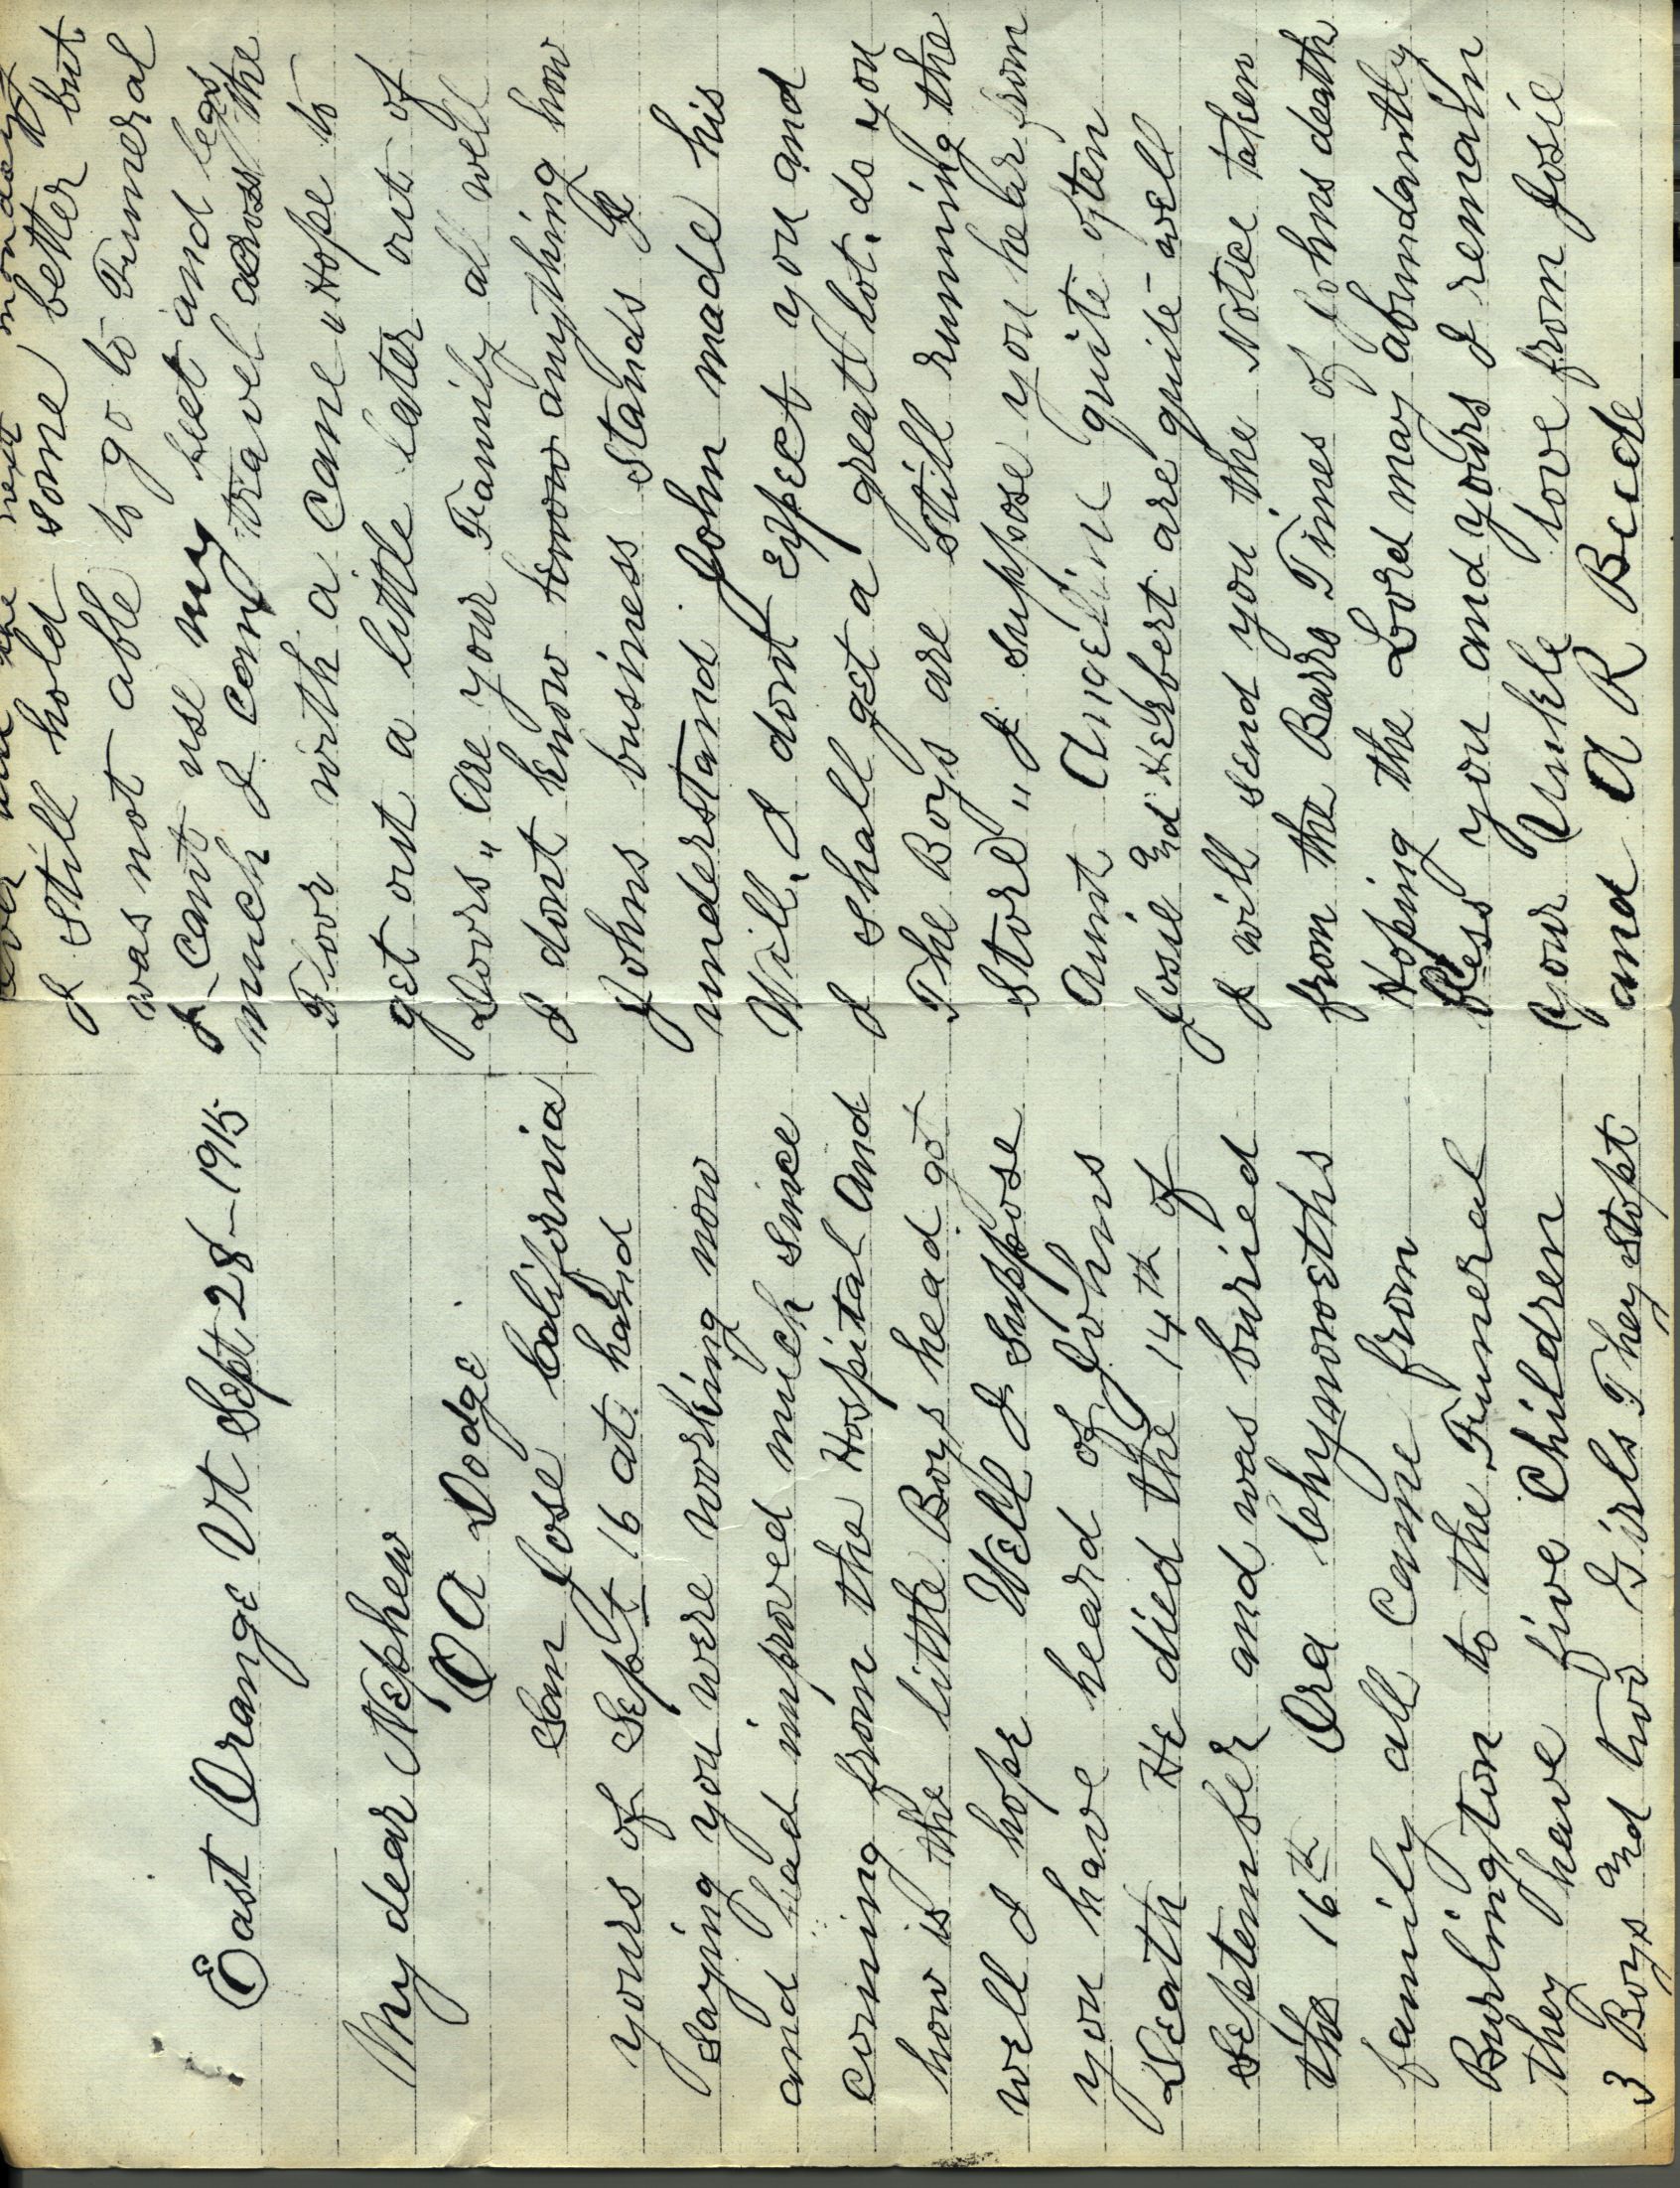 East Orange Vt Sept 28 - 1915
My dear Nephew
O A Dodge
San Jose California
yours of Sept 16 at hand
saying you were working now
and had improved much since
coming from the Hospital and
how is the little Boys head got
well I hope Well I suppose
you have heard of Johns
Death He died the 14th of
September and was buried
the 16th Ora Chynoweths
family all came from
Burlington to the Funeral
they have five Children
3 Boys and two Girls They stopt
next monday
I still hold some better but
was not able to go to Funeral
I cant use my feet and legs
much I can travel across the
Floor with a cane & Hope to
get out a little later out of
Doors " are your Family all well
I dont know know anything how
Johns business stands I
understand John made his
Will. I dont expect you and
I shall get a great lot. do you
The Boys are still running the
Store " I suppose you hear from
Aunt Angeline quite often
Josie and Herbert are quite well
I will send you the Notice taken
from the Barre Times of Johns death
Hoping the Lord may abundantly
bless you and yours I remain
your Unkle love from Josie
and A R Bede